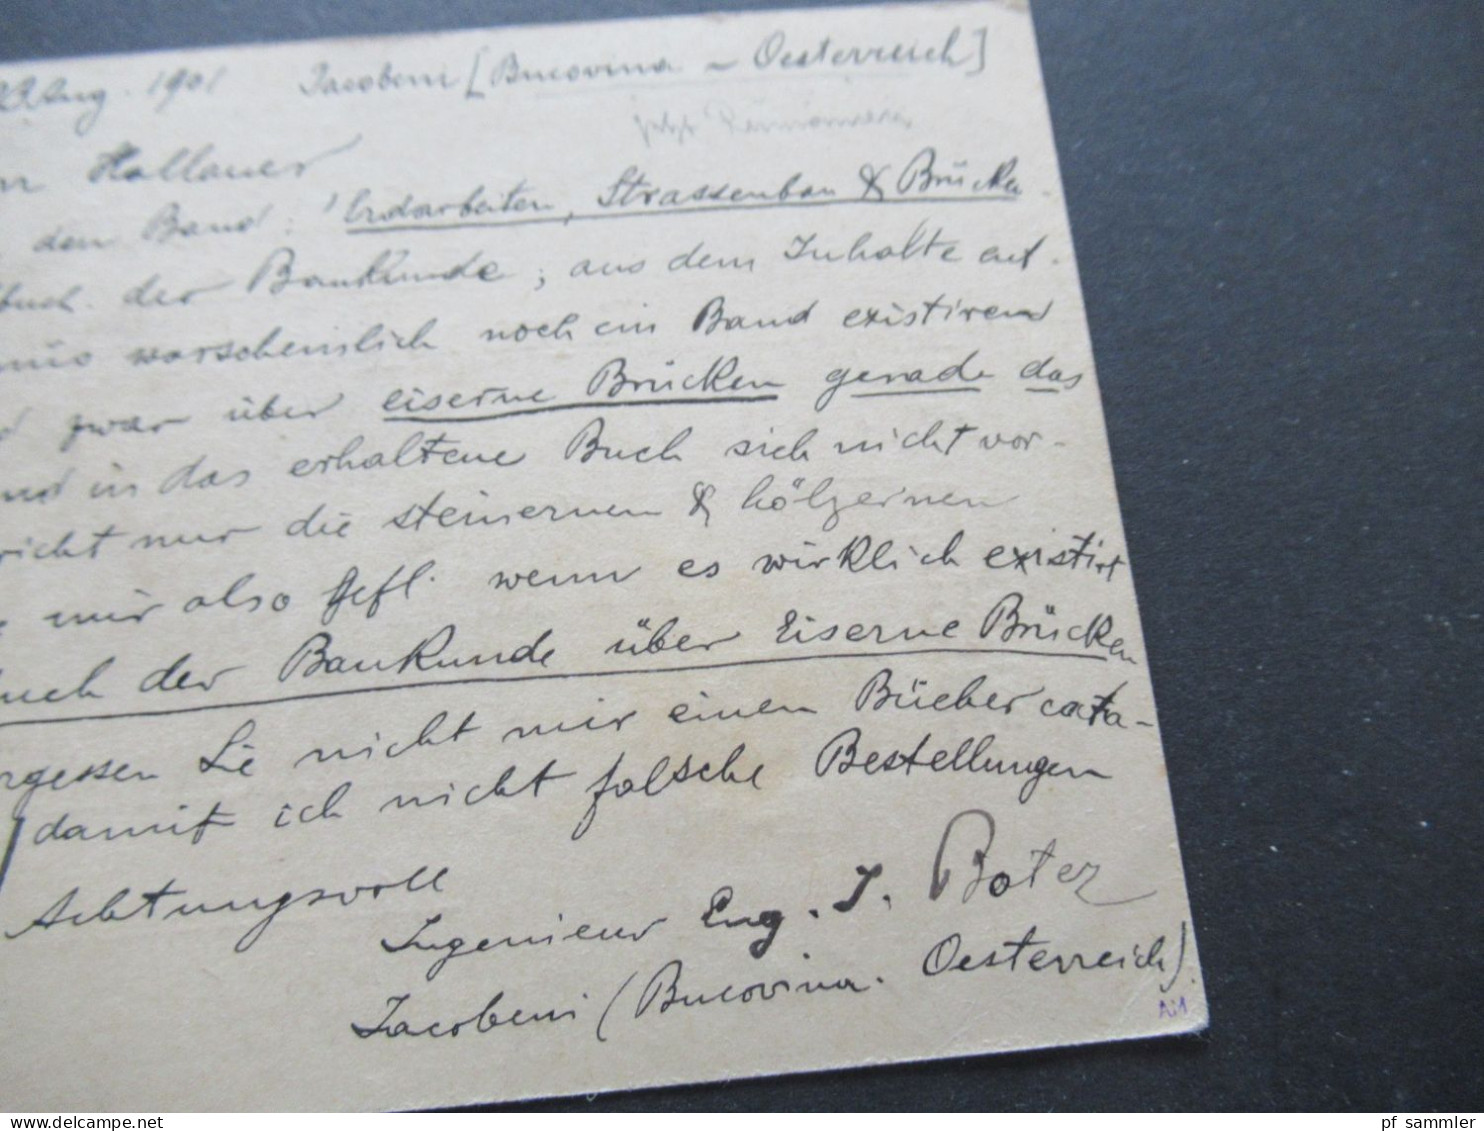 Aug. 1901 Jacobeni [Bucovina - Oesterreich]
jetzt
Hallauer
den Band: "Erdarbeiten, Strassenbau & Brücken
buch der Baukunde; aus dem Inhalte ent-
warscheinlich noch ein Band existiren
zwar über eiserne Brücken gerade das
in das erhaltene Buch sich nicht vor-
richt nur die steinernen & hölzernen
mir also gefl. wenn es wirklich existirt
buch der Baukunde über Eiserne Brücken
rgessen Sie nicht mir einen Bücher cata-
damit ich nicht falsche Bestellungen
Achtungsvoll
Ingenieur Eug. J. Botez
Jacobeni (Bucovina. Oesterreich)
pf_sammler